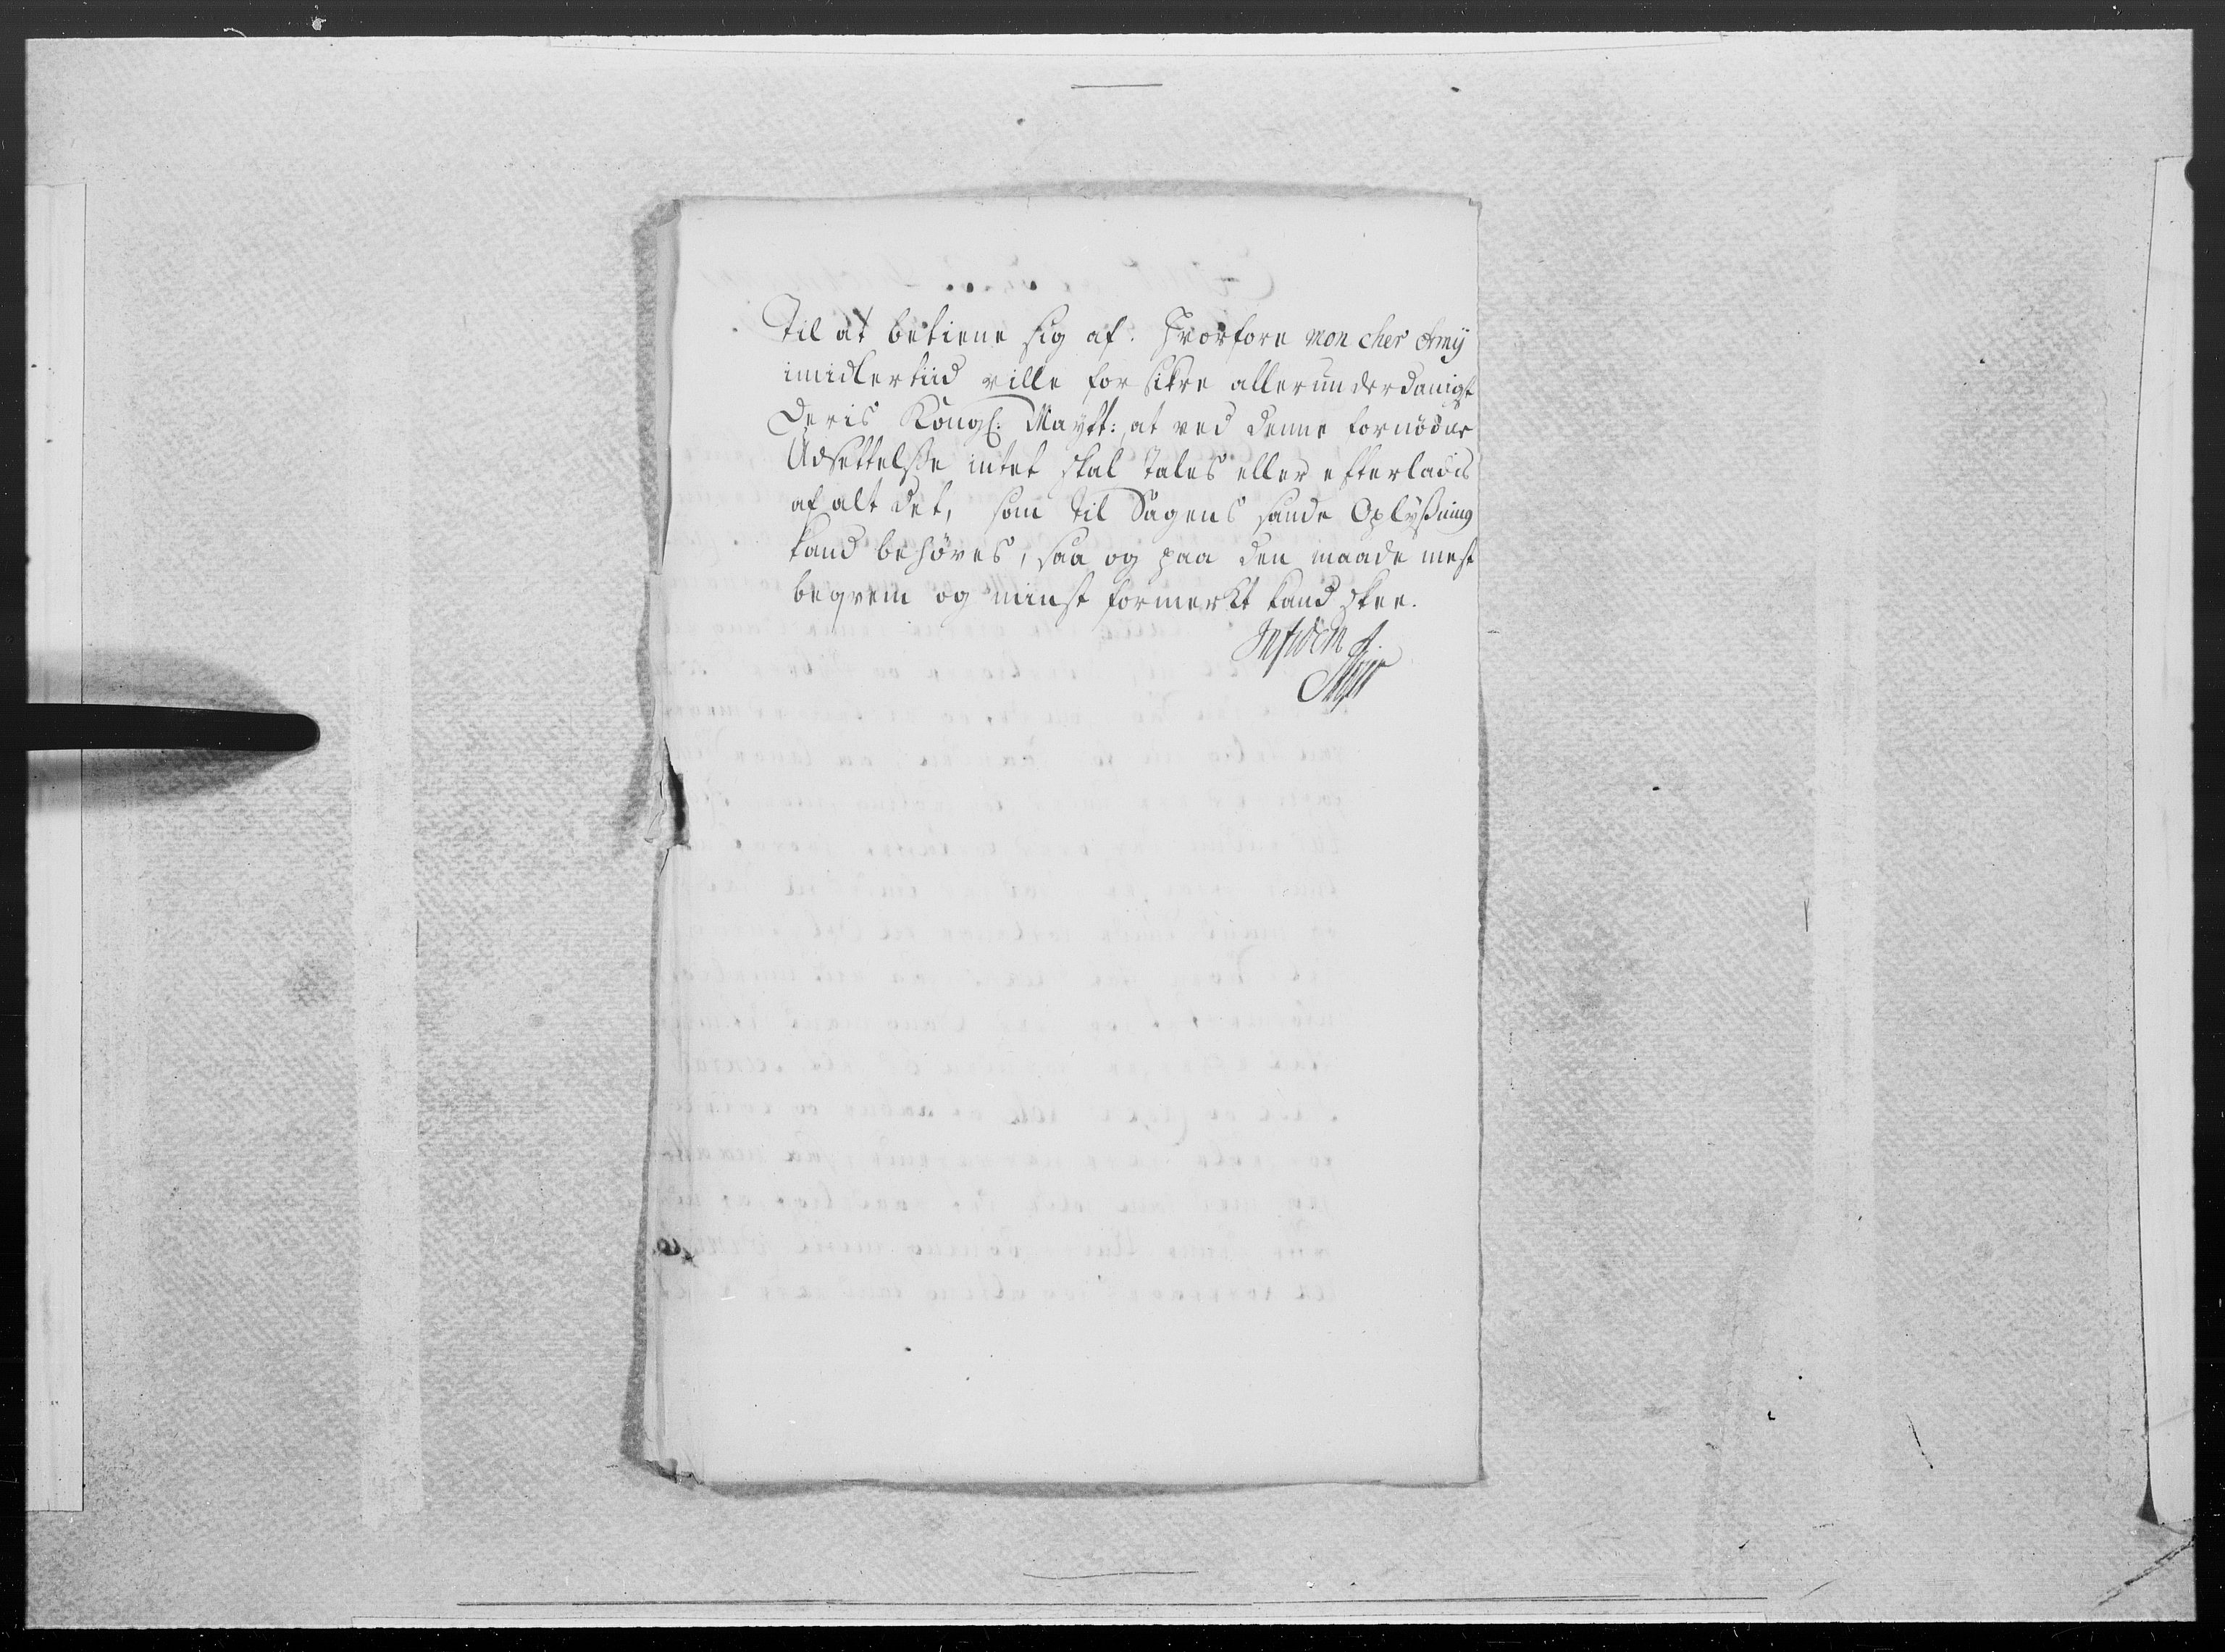 Til at betiene sig af. Hvorfore mon cher Amÿ
imidlertiid ville forsikre allerunderdanigst
Deris Kongl: Maytt:, at ved denne fornödne
Udsettelsse intet skal tales eller efterladis
af alt det, som til Sagens sande Oplysning
kand behöves, saa og paa den maade mest
beqvem og minst formerkt kand skee.
In fidem